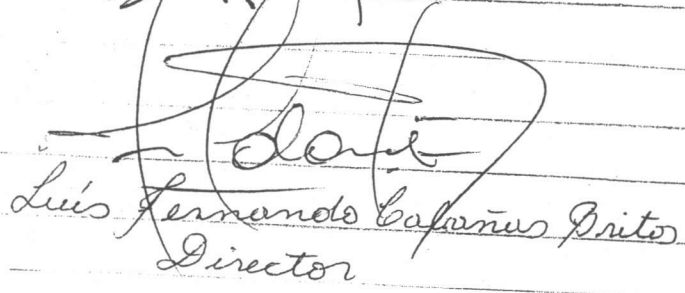 Luís Fernando Cabañas Britos
Director